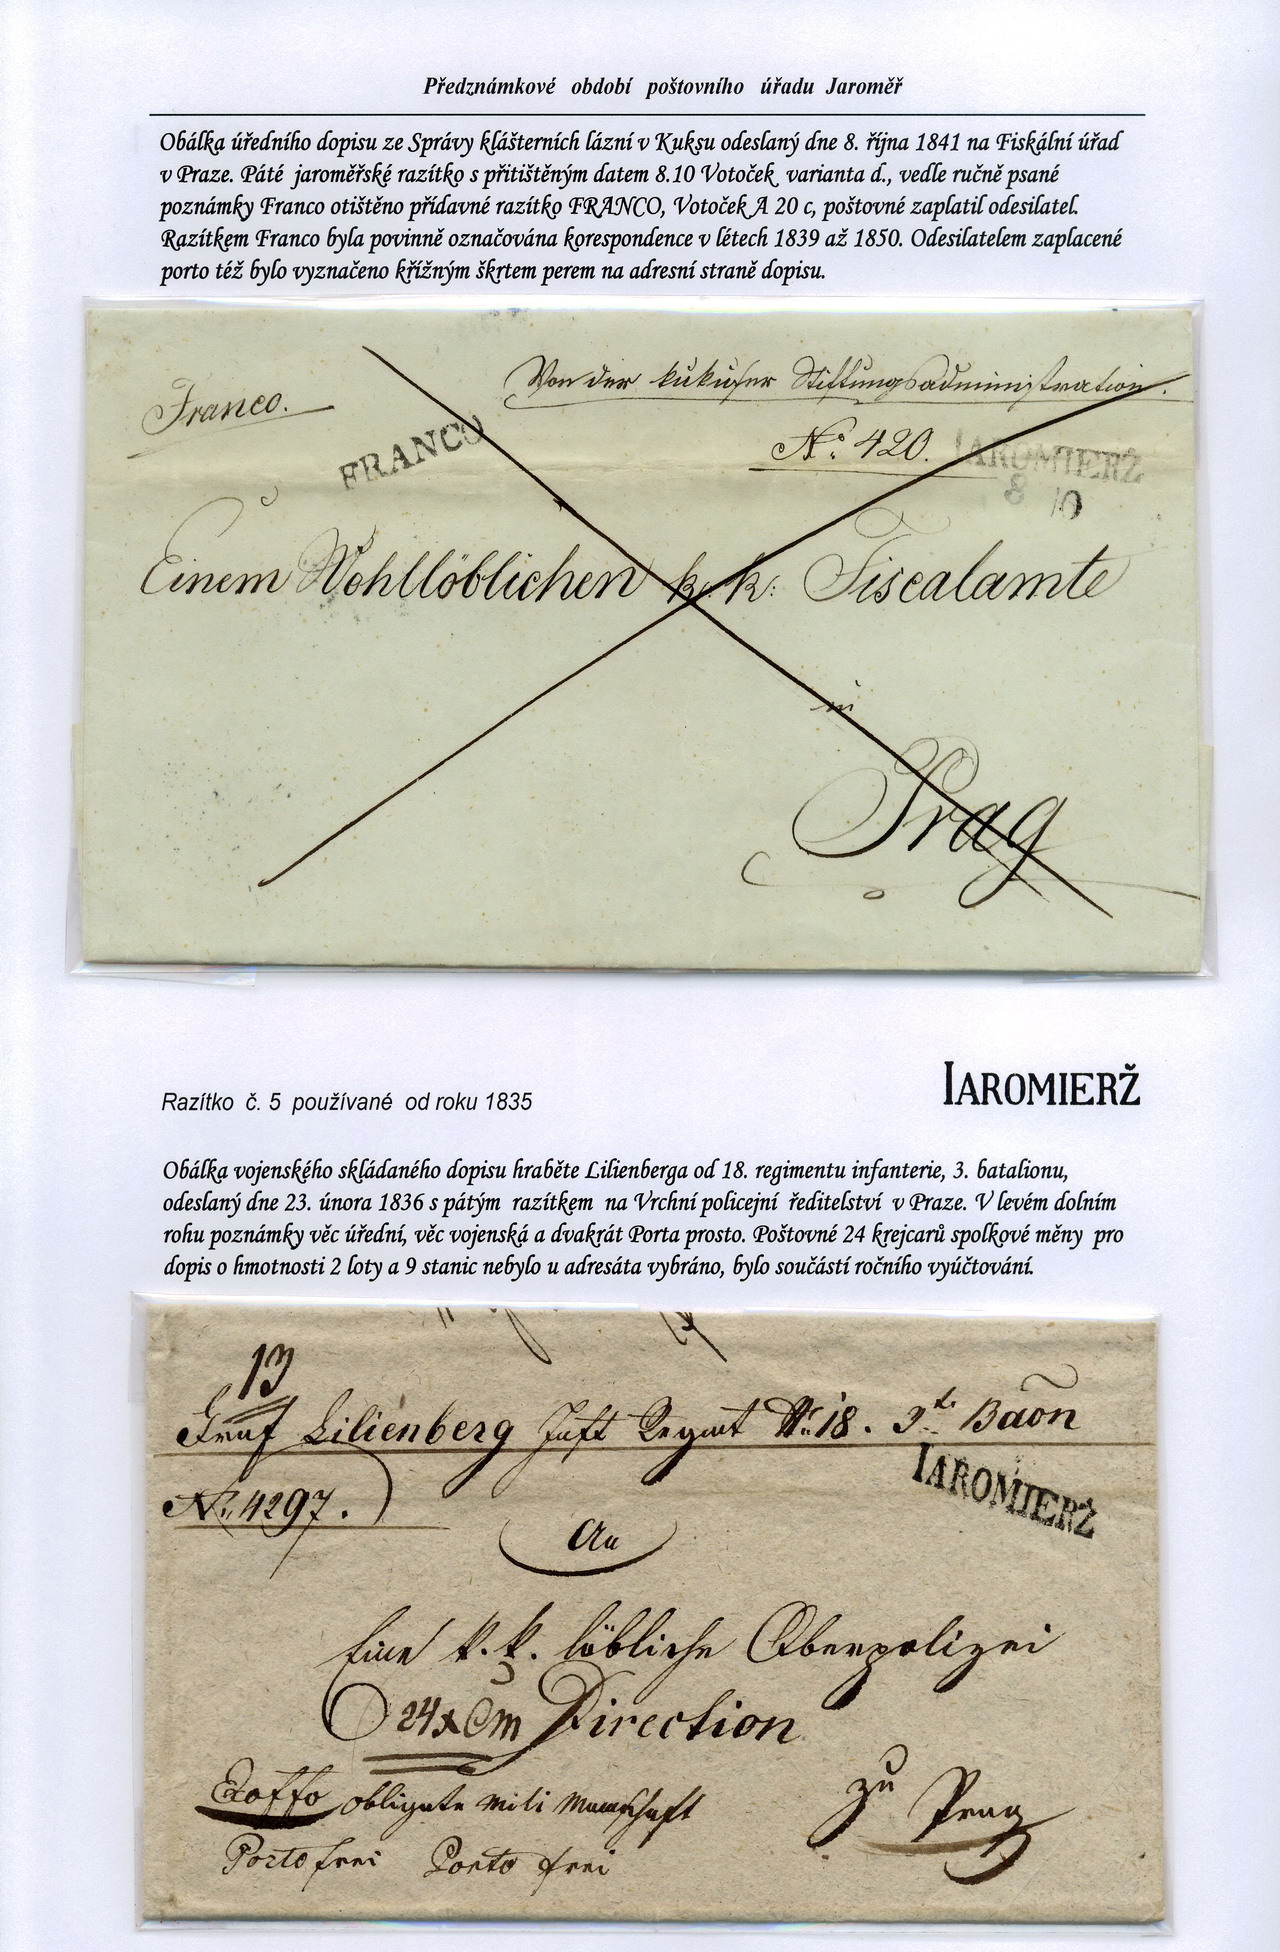 Předznámkové období poštovního úřadu Jaroměř
Obálka úředního dopisu ze Správy klášterních lázní v Kuksu odeslaný dne 8. října 1841 na Fiskální úřad
v Praze. Páté jaroměřské razítko s přitištěným datem 8.10 Votoček varianta d., vedle ručně psané
poznámky Franco otištěno přídavné razítko FRANCO, Votoček A 20 c, poštovné zaplatil odesilatel.
Razítkem Franco byla povinně označována korespondence v létech 1839 až 1850. Odesilatelem zaplacené
porto též bylo vyznačeno křížným škrtem perem na adresní straně dopisu.
Von der kukuser Stiftungsadministration.
Franco.
FRANCO
No. 420.
IAROMIERŽ
8 10
Einem Wohllöblichen k: k: Fiscalamte
in
Prag
IAROMIERŽ
Razítko č. 5 používané od roku 1835
Obálka vojenského skládaného dopisu hraběte Lilienberga od 18. regimentu infanterie, 3. batalionu,
odeslaný dne 23. února 1836 s pátým razítkem na Vrchní policejní ředitelství v Praze. V levém dolním
rohu poznámky věc úřední, věc vojenská a dvakrát Porta prosto. Poštovné 24 krejcarů spolkové měny pro
dopis o hmotnosti 2 loty a 9 stanic nebylo u adresáta vybráno, bylo součástí ročního vyúčtování.
13
Graf Lilienberg Inft Regmt No 18. 3te Baon
IAROMIERŽ
No. 4297.
An
Eine k. k. löbliche Oberpolizei
24x Cm Direction
Exoffo obligate Mili Mannschaft
zu Prag
Porto frei Porto frei